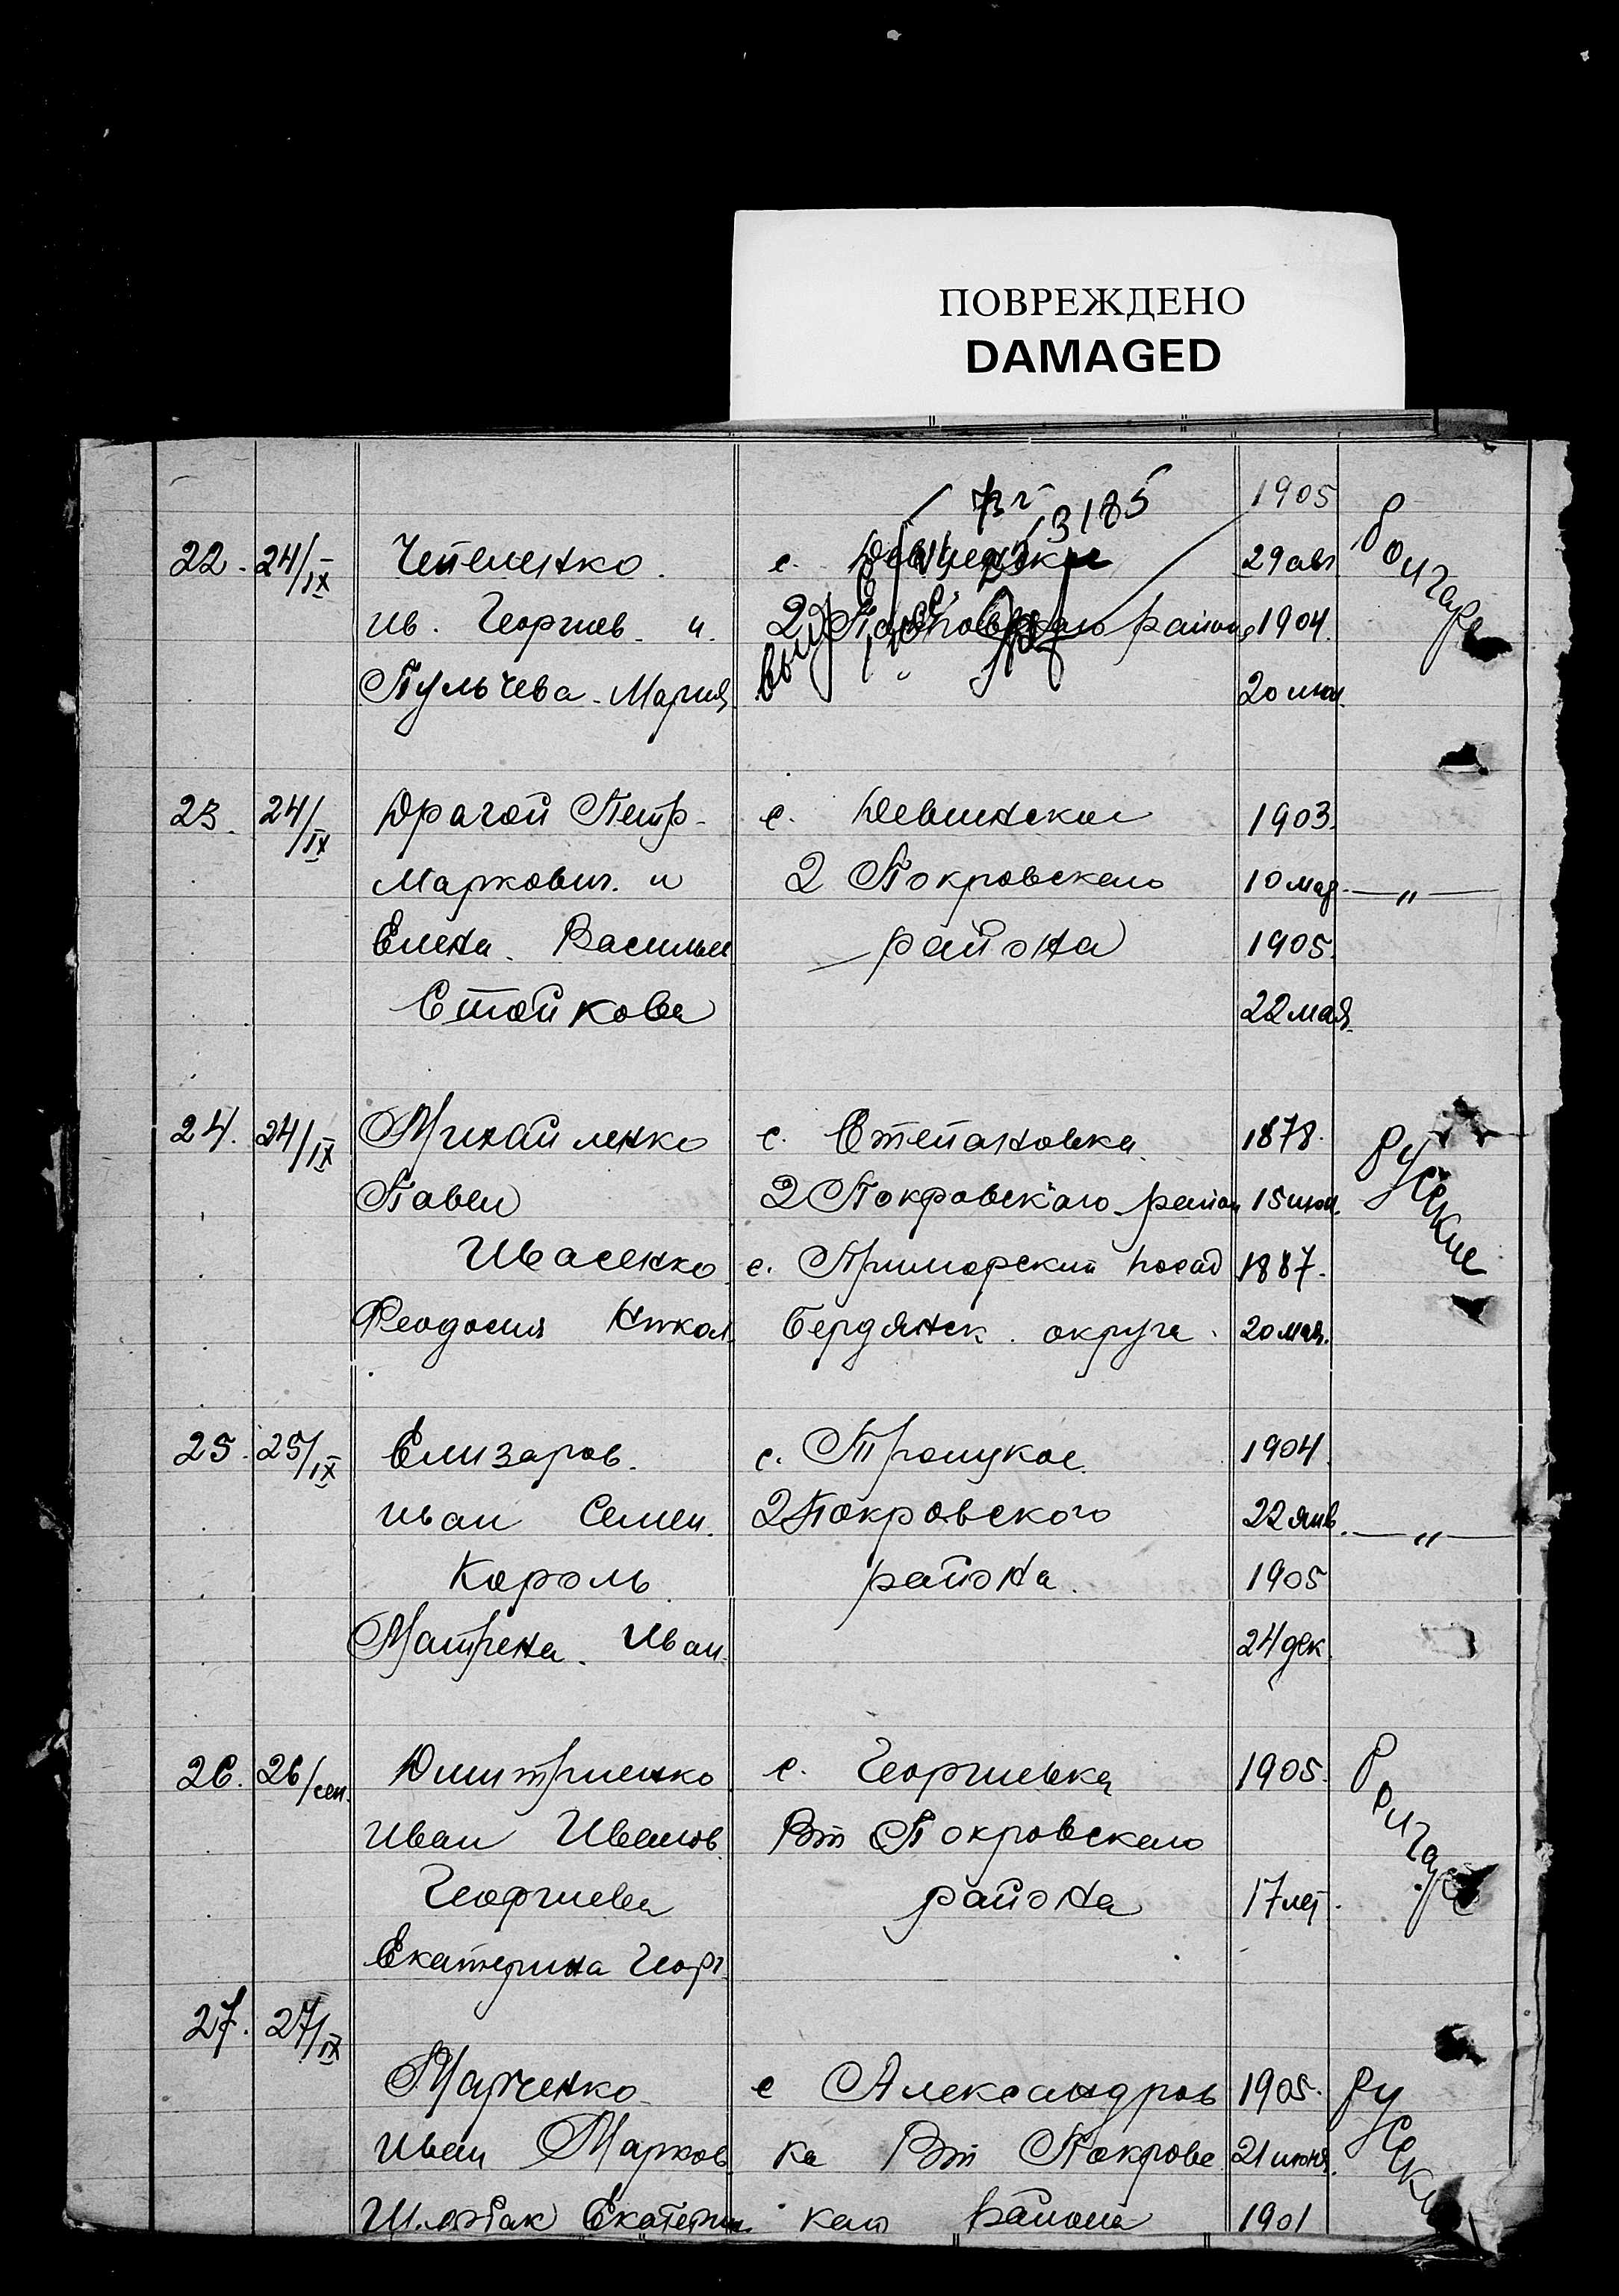 ПОВРЕЖДЕНО
DAMAGED
1905
22. 24/IX Чепеленко. с. 29 авг
ив. Георгиев. и. 2 Покровского района 1904.
Пульчева. Мария 20 июн.
23. 24/IX Драгой Петр. с. Девинское 1903.
Маркович. и 2 Покровского 10 мар. —„—
Елена. Василье района 1905.
Стойкова 22 мая.
24. 24/IX Михайленко с. Степановка. 1878. русские
Павел 2 Покровского район 15 июн.
Ивасенко с. Приморский посад 1887.
Феодосия Никол. Бердянск. округа. 20 мая.
25. 25/IX Елизаров. с. Троицкое. 1904.
Иван Семен. 2 Покровского 22 янв. —„—
Король района. 1905
Матрена. Иван. 24 дек.
26. 26/сен. Дмитриенко с. Георгиевка 1905.
Иван Иванов. Вт Покровского
Георгиева района 17 лет.
Екатерина Георг.
27. 27/IX
Марченко с Александров 1905. русские
Иван Марков ка Вт Покровс 21 июня.
Екатерин кого района 1901